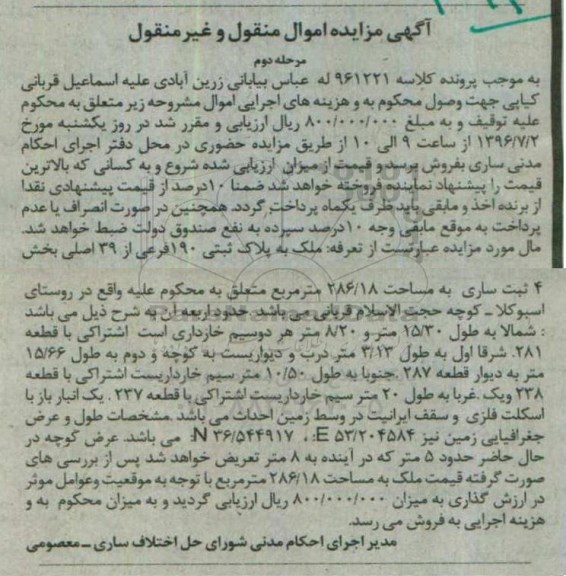 آگهی مزایده اموال منقول و غیر منقول
مرحله دوم
به موجب پرونده کلاسه ۹۶۱۲۲۱ له عباس بیابانی زرین آبادی علیه اسماعیل قربانی
کیاپی جهت وصول محکوم به و هزینه های اجرایی اموال مشروحه زیر متعلق به محکوم
علیه توقیف و به مبلغ ۸۰۰/۰۰۰/۰۰۰ ریال ارزیابی و مقرر شد در روز یکشنبه مورخ
۱۳۹۶/۷/۲ از ساعت ۹ الی ۱۰ از طریق مزایده حضوری در محل دفتر اجرای احکام
مدنی ساری بفروش برسد و قیمت از میزان ارزیابی شده شروع و به کسانی که بالاترین
قیمت را پیشنهاد نماینده فروخته خواهد شد ضمنا ۱۰درصد از قیمت پیشنهادی نقدا
از برنده اخذ و مابقی باید ظرف یکماه پرداخت گردد. همچنین در صورت انصراف یا عدم
پرداخت به موقع مابقی وجه ۱۰درصد سپرده به نفع صندوق دولت ضبط خواهد شد.
مال مورد مزایده عبارتست از تعرفه: ملک به پلاک ثبتی ۱۹۰فرعی از ۳۹ اصلی بخش
۴ ثبت ساری به مساحت ۲۸۶/۱۸ مترمربع متعلق به محکوم علیه واقع در روستای
اسبوکلا ـ کوچه حجت الاسلام قربانی می باشد. حدود اربعه آن به شرح ذیل می باشد
: شمالا به طول ۱۵/۳۰ متر و ۸/۲۰ متر هر دوسیم خارداری است اشتراکی با قطعه
۲۸۱. شرقا اول به طول ۳/۱۳ متر درب و دیواریست به کوچه و دوم به طول ۱۵/۶۶
متر به دیوار قطعه ۲۸۷ .جنوبا به طول ۱۰/۵۰ متر سیم خارداریست اشتراکی با قطعه
۲۳۸ ویک .غربا به طول ۲۰ متر سیم خارداریست اشتراکی با قطعه ۲۳۷ . یک انبار باز با
اسکلت فلزی و سقف ایرانیت در وسط زمین احداث می باشد .مشخصات طول و عرض
جغرافیایی زمین نیز E ۵۳/۲۰۴۵۸۴: ، N ۳۶/۵۴۴۹۱۷: می باشد. عرض کوچه در
حال حاضر حدود ۵ متر که در آینده به ۸ متر تعریض خواهد شد پس از بررسی های
صورت گرفته قیمت ملک به مساحت ۲۸۶/۱۸ مترمربع با توجه به موقعیت وعوامل موثر
در ارزش گذاری به میزان ۸۰۰/۰۰۰/۰۰۰ ریال ارزیابی گردید و به میزان محکوم به و
هزینه اجرایی به فروش می رسد.
مدیر اجرای احکام مدنی شورای حل اختلاف ساری ـ معصومی